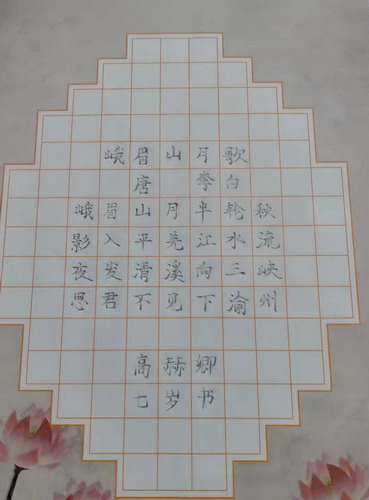 峨眉山月歌
唐 李白
峨眉山月半轮秋
影入平羌江水流
夜发清溪向三峡
思君不见下渝州
高赫卿
七岁书